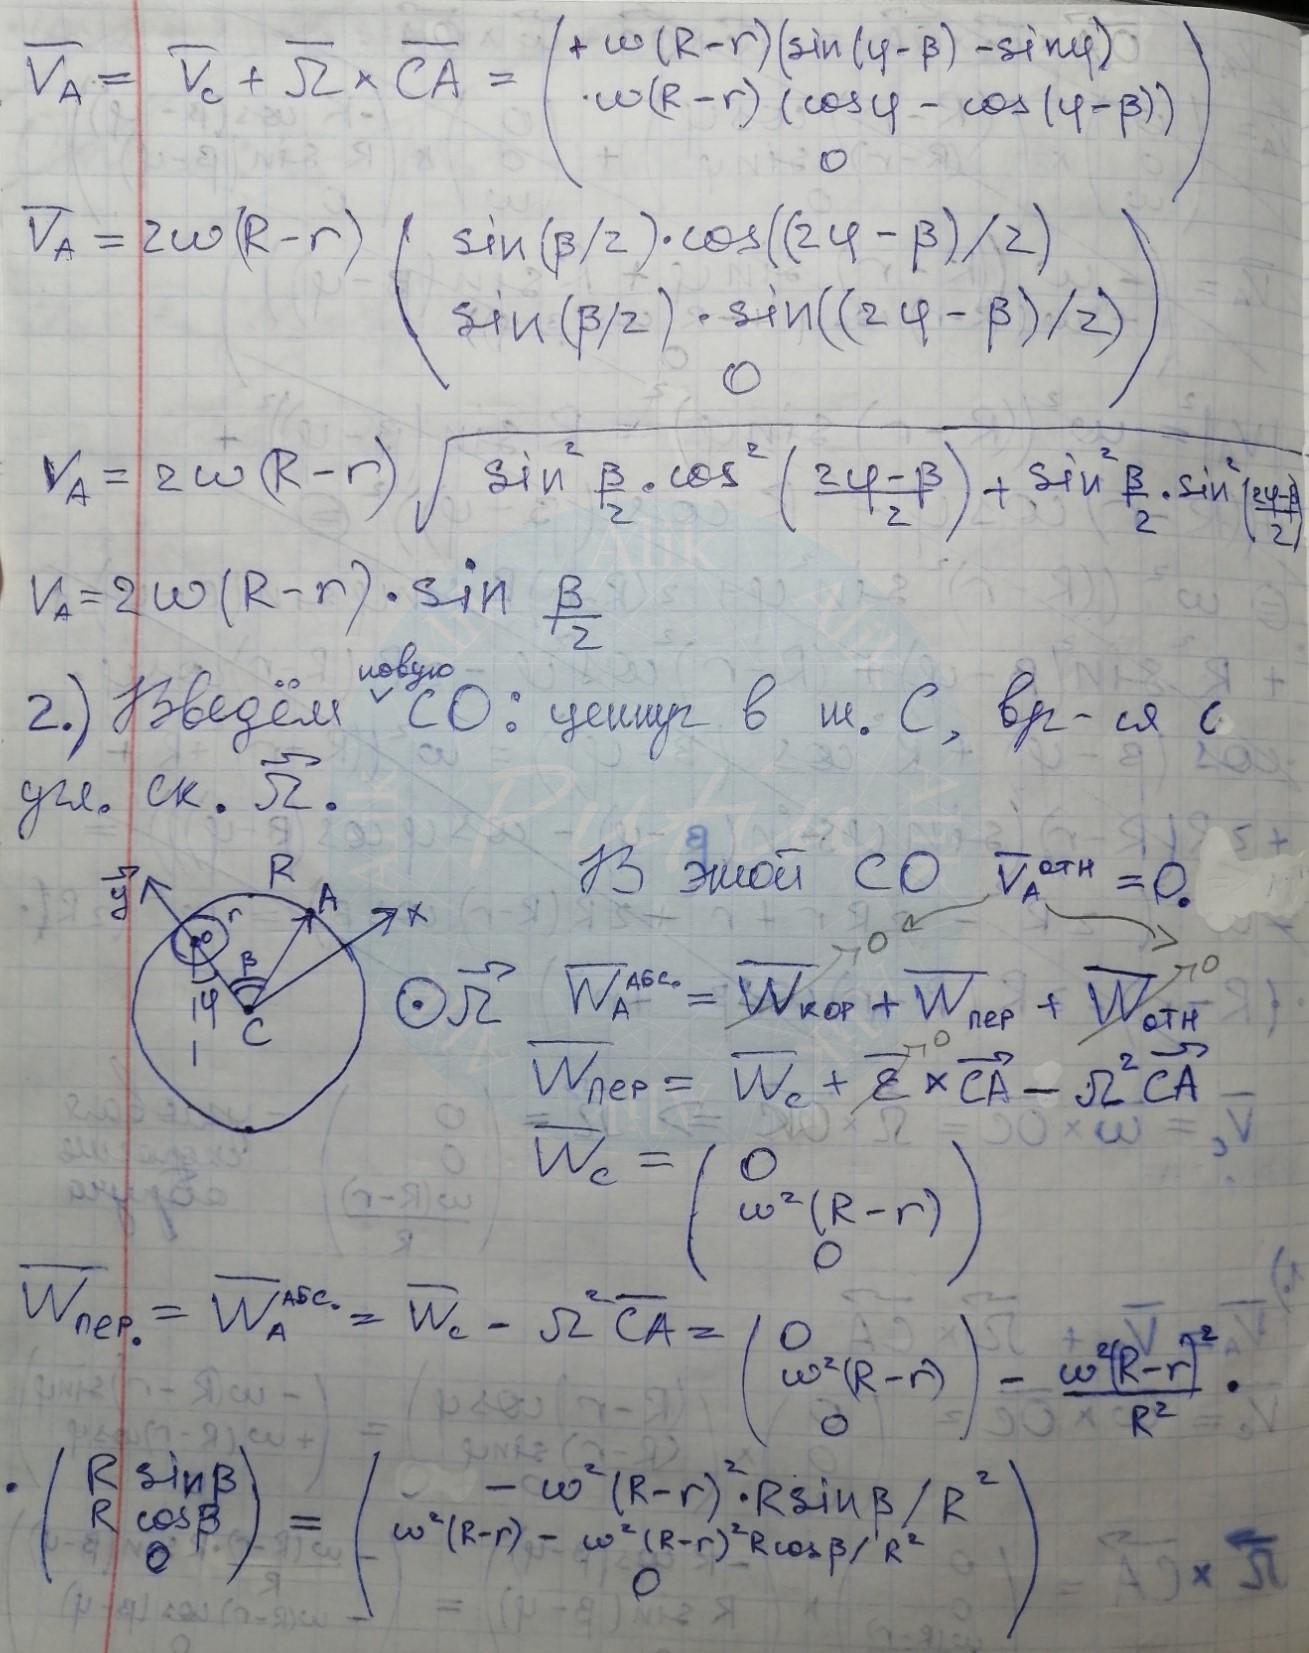 V̅_A = V̅_c + Ω̅ × C̅A̅ = ( + ω(R−r)(sin(φ−β) − sinφ)
· ω(R−r)(cosφ − cos(φ−β))
0 )
V̅_A = 2ω(R−r) ( sin(β/2)·cos((2φ−β)/2)
sin(β/2)·sin((2φ−β)/2)
0 )
V_A = 2ω(R−r) √(sin² β/2 · cos² ((2φ−β)/2) + sin² β/2 · sin² ((2φ−β)/2))
V_A = 2ω(R−r)·sin β/2
новую
2.) Введём ˅ СО: центр в т. С, вр-ся с
угл. ск. Ω⃗.
В этой СО V̅_A^отн = 0.
y⃗ R r A x
β φ C
⊙ Ω⃗
W̅_A^АБС. = W̅_кор →0 + W̅_пер + W̅_отн →0
W̅_пер = W̅_c + ε̅ →0 × CA⃗ − Ω² CA⃗
W̅_c = ( 0
ω²(R−r)
0 )
W̅_пер. = W̅_A^АБС. = W̅_c − Ω² C̅A̅ = ( 0
ω²(R−r)
0 ) − ω²(R−r)²/R² ·
· ( R sinβ
R cosβ
0 ) = ( − ω²(R−r)²·R sinβ / R²
ω²(R−r) − ω²(R−r)² R cosβ / R²
0 )